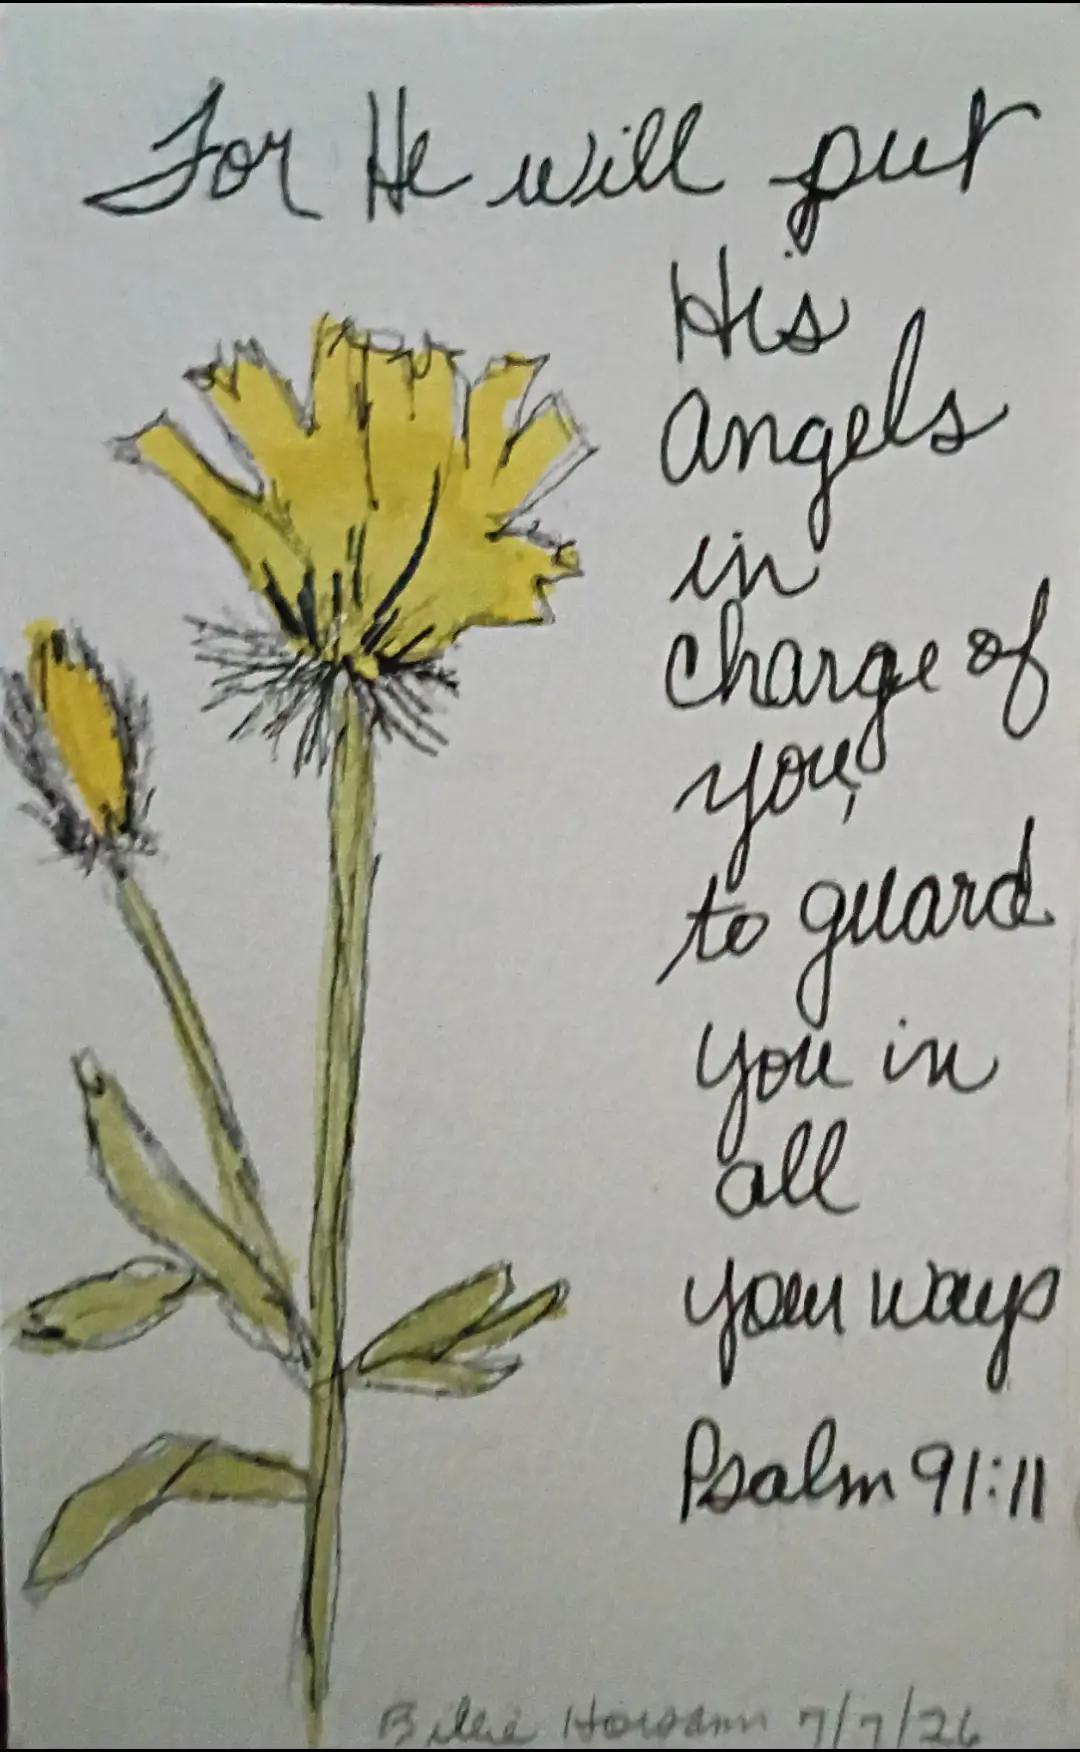 For He will put
His
angels
in
charge of
you,
to guard
you in
all
your ways
Psalm 91:11
Billie 7/7/26